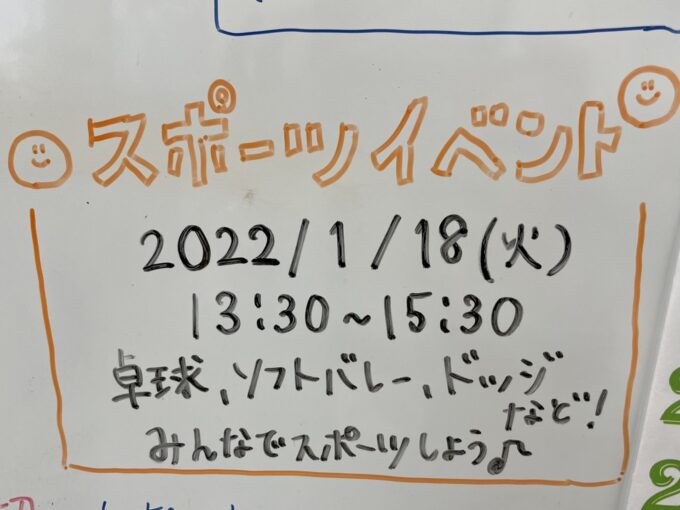 スポーツイベント
2022/1/18(火)
13:30~15:30
卓球、ソフトバレー、ドッジ
など!
みんなでスポーツしよう♪